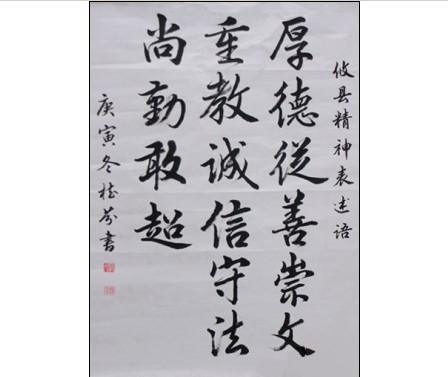 攸县精神表述语
厚德從善崇文
重教诚信守法
尚勤敢超
庚寅冬桂芬書